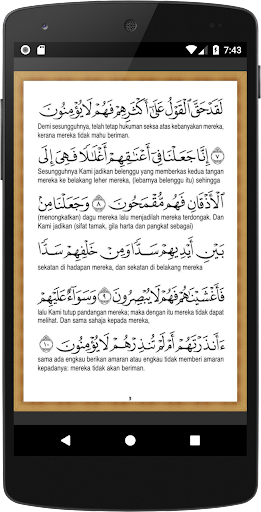 7:43
لَقَدْ حَقَّ الْقَوْلُ عَلَىٰ أَكْثَرِهِمْ فَهُمْ لَا يُؤْمِنُونَ
Demi sesungguhnya, telah tetap hukuman seksa atas kebanyakan mereka,
kerana mereka tidak mahu beriman.
٧ إِنَّا جَعَلْنَا فِي أَعْنَاقِهِمْ أَغْلَالًا فَهِيَ إِلَى
Sesungguhnya Kami jadikan belenggu yang memberkas kedua tangan
mereka ke belakang leher mereka, (lebarnya belenggu itu) sehingga
الْأَذْقَانِ فَهُمْ مُقْمَحُونَ ٨ وَجَعَلْنَا مِنْ
(menongkatkan) dagu mereka lalu menjadilah mereka terdongak. Dan
Kami jadikan (sifat tamak, gila harta dan pangkat sebagai)
بَيْنِ أَيْدِيهِمْ سَدًّا وَمِنْ خَلْفِهِمْ سَدًّا
sekatan di hadapan mereka, dan sekatan di belakang mereka
فَأَغْشَيْنَاهُمْ فَهُمْ لَا يُبْصِرُونَ ٩ وَسَوَاءٌ عَلَيْهِمْ
lalu Kami tutup pandangan mereka; maka dengan itu mereka tidak dapat
melihat. Dan sama sahaja kepada mereka,
ءَأَنْذَرْتَهُمْ أَمْ لَمْ تُنْذِرْهُمْ لَا يُؤْمِنُونَ ١٠
sama ada engkau berikan amaran atau engkau tidak memberi amaran
kepadanya: mereka tidak akan beriman.
3